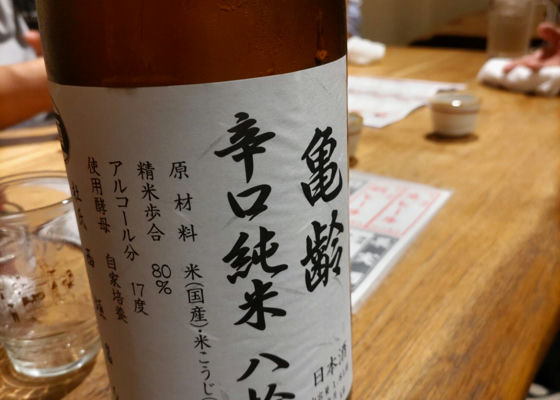 亀齢
辛口純米 八拾
日本酒
原材料 米(国産)・米こうじ(
精米歩合 80%
アルコール分 17度
使用酵母 自家培養
杜氏 西垣